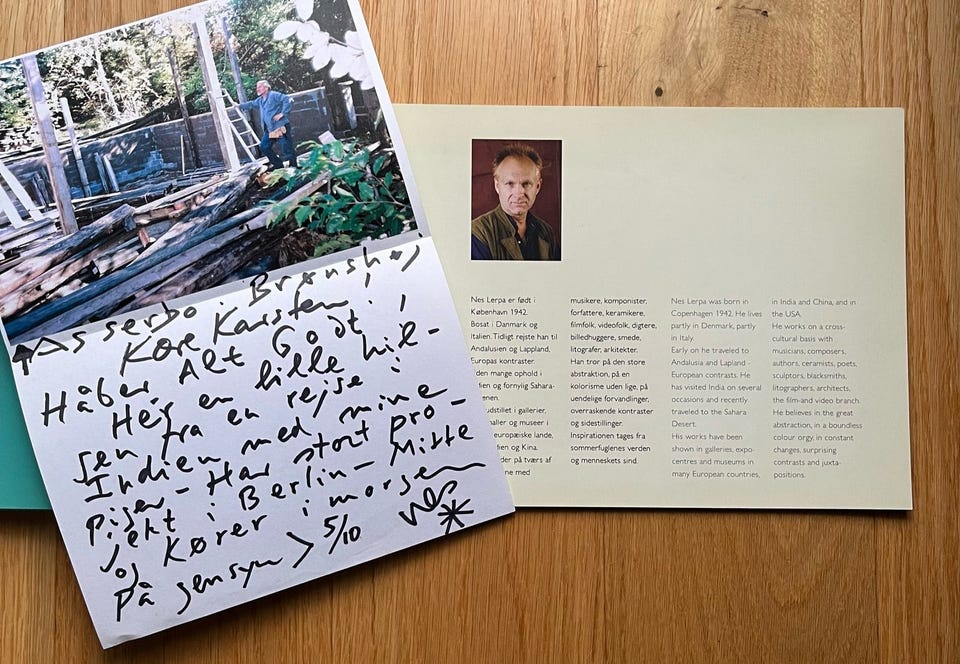 Asserbo i Brønshøj
Kære Karsten,
Håber Alt Godt,
Her en lille hil-
sen fra en rejse i
Indien med mine
Piger - Har stort pro-
jekt i Berlin-Mitte
og kører i morgen
På gensyn > 5/10
Nes Lerpa er født i
København 1942.
Bosat i Danmark og
Italien. Tidligt rejste han til
Andalusien og Lappland,
Europas kontraster.
den mange ophold i
dien og fornylig Sahara-
enen.
udstillet i gallerier,
haller og museer i
europæiske lande,
dien og Kina.
der på tværs af
ne med
musikere, komponister,
forfattere, keramikere,
filmfolk, videofolk, digtere,
billedhuggere, smede,
litografer, arkitekter.
Han tror på den store
abstraktion, på en
kolorisme uden lige, på
uendelige forvandlinger,
overraskende kontraster
og sidestillinger.
Inspirationen tages fra
sommerfuglenes verden
og menneskets sind.
Nes Lerpa was born in
Copenhagen 1942. He lives
partly in Denmark, partly
in Italy.
Early on he traveled to
Andalusia and Lapland -
European contrasts. He
has visited India on several
occasions and recently
traveled to the Sahara
Desert.
His works have been
shown in galleries, expo-
centres and museums in
many European countries,
in India and China, and in
the USA.
He works on a cross-
cultural basis with
musicians, composers,
authors, ceramists, poets,
sculptors, blacksmiths,
litographers, architects,
the film-and video branch.
He believes in the great
abstraction, in a boundless
colour orgy, in constant
changes, surprising
contrasts and juxta-
positions.